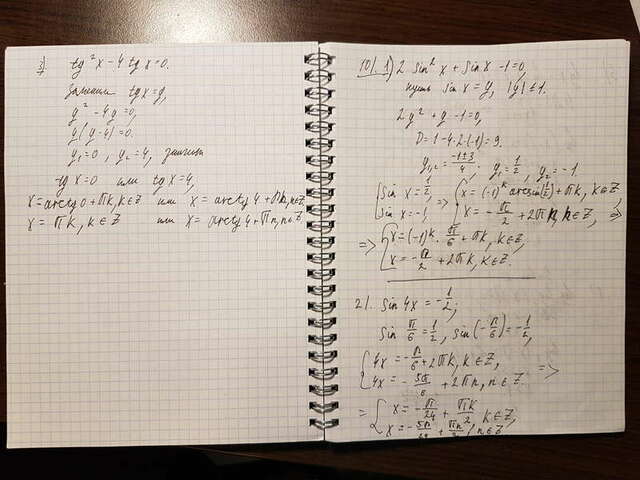 3) tg²x - 4 tg x = 0.
замена tg x = y.
y² - 4y = 0,
y(y-4) = 0.
y₁ = 0, y₂ = 4, значит
tg x = 0 или tg x = 4,
x = arctg 0 + πk, k∈Z или x = arctg 4 + πn, n∈Z
x = πk, k∈Z или x = arctg 4 + πn, n∈Z
2 sin²x + sin x - 1 = 0.
sin x = y, |y| ≤ 1.
2y² + y - 1 = 0,
D = 1 - 4·2·(-1) = 9.
y₁,₂ = (-1±3)/4; y₁ = 1/2, y₂ = -1.
{sin x = 1/2, sin x = -1, => {x = (-1)ᵏ arcsin(1/2) + πk, k∈Z x = -π/2 + 2πn, n∈Z, =>
=> {x = (-1)ᵏ · π/6 + πk, k∈Z, x = -π/2 + 2πk, k∈Z.
21. sin 4x = -1/2;
sin π/6 = 1/2, sin(-π/6) = -1/2,
{4x = -π/6 + 2πk, k∈Z, 4x = -5π/6 + 2πn, n∈Z. =>
=> {x = -π/24 + πk/2, k∈Z, x = -5π/24 + πn/2, n∈Z,